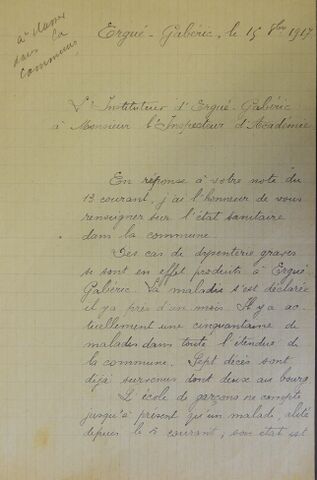 dans la
commune
Ergué-Gabéric, le 15 8bre 1917
L'Instituteur d'Ergué-Gabéric
à Monsieur l'Inspecteur d'Académie
En réponse à votre note du
13 courant, j'ai l'honneur de vous
renseigner sur l'état sanitaire
dans la commune.
Des cas de dysenterie graves
se sont en effet produits à Ergué-
Gabéric. La maladie s'est déclarée
il y a près d'un mois. Il y a ac-
tuellement une cinquantaine de
malades dans toute l'étendue de
la commune. Sept décès sont
déjà survenus dont deux au bourg.
L'école de garçons ne compte
jusqu'à présent qu'un malade, alité
depuis le 2 courant; son état est